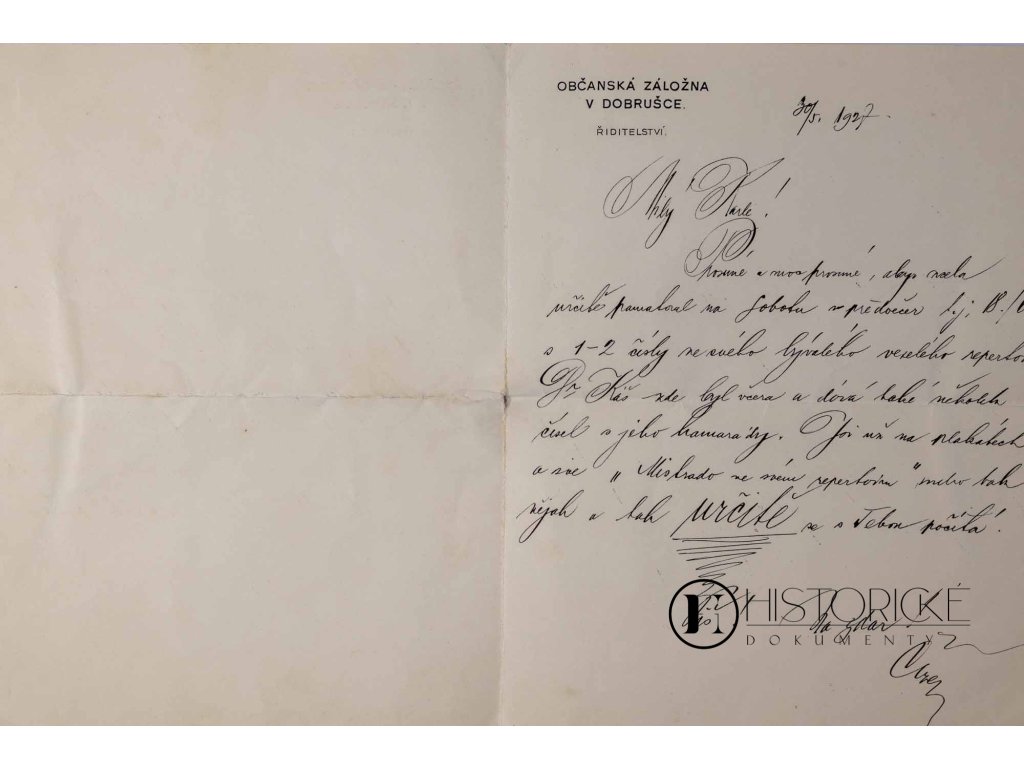 OBČANSKÁ ZÁLOŽNA
V DOBRUŠCE.
ŘIDITELSTVÍ.
30/5. 1927.
Milý Karle!
Prosíme a moc prosíme, abys
určitě pamatoval na sobotu v předvečer t.j. 18./
s 1-2 čísly ze svého bývalého veselého
Dr. Káš zde byl včera a dává také několik
čísel s jeho kamarády. Jsi už na plakátech
a sice „Mistrado ve svém repertoiru" nebo tak
nějak a tak určitě se s Tebou počítá.
Na zdar!
HISTORICKÉ
DOKUMENTY